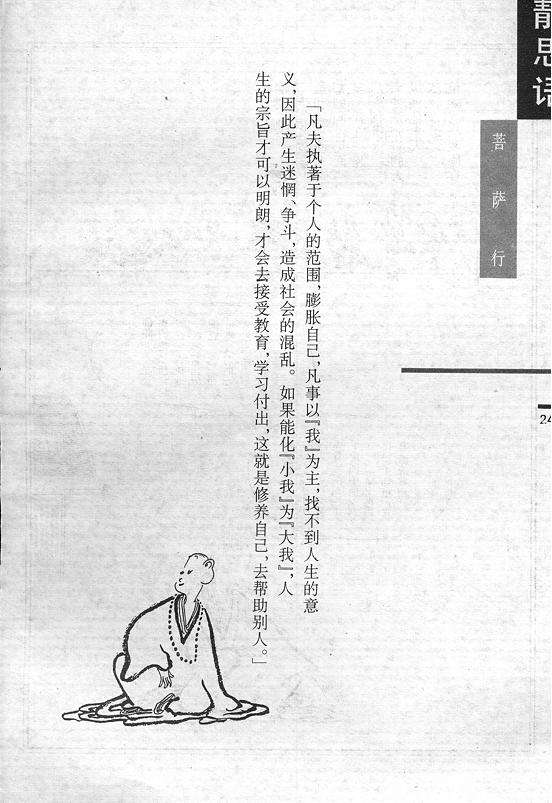 静思语
菩萨行
「凡夫执著于个人的范围，膨胀自己，凡事以『我』为主，找不到人生的意
义，因此产生迷惘、争斗，造成社会的混乱。如果能化『小我』为『大我』，人
生的宗旨才可以明朗，才会去接受教育，学习付出，这就是修养自己，去帮助别人。」